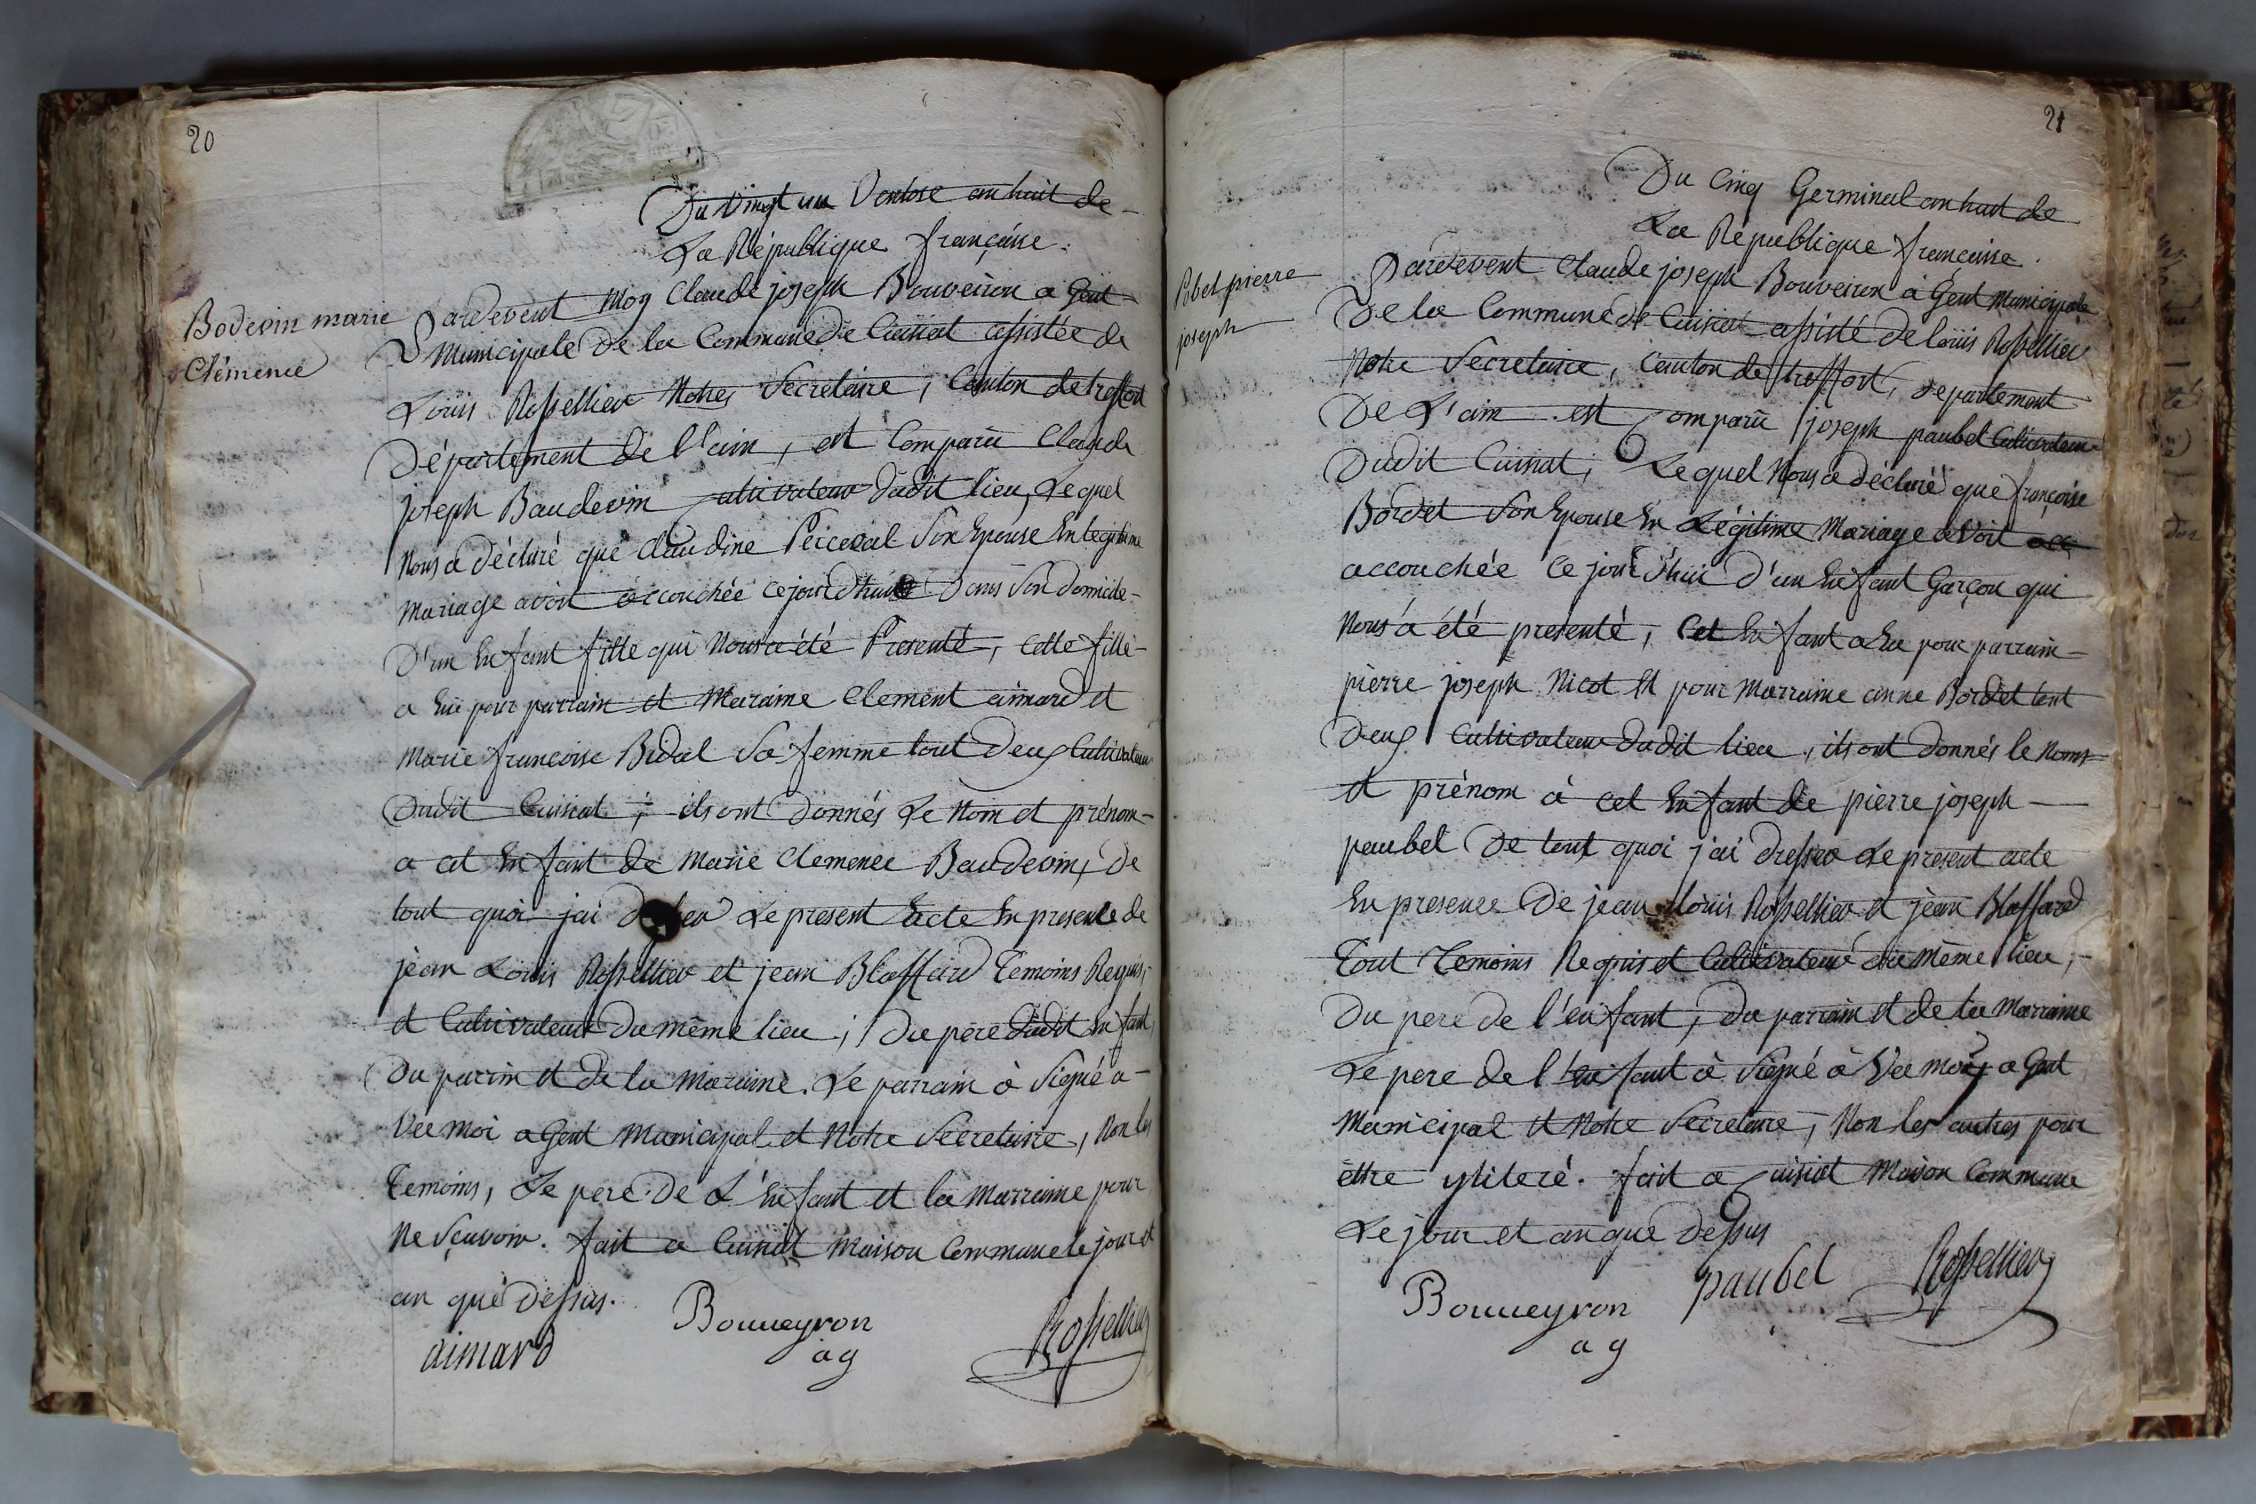 20
Du vingt un Ventose an huit de
La République françáise.
Bodevin marie
Clémence
Pardevent Moy Claude joseph Bouveiron a Gent
Municipale de la Commune de Cuisiat assistée de
Loüis Rossellier Notre Secretaire, Canton de treffort
Département de l'ain, est Comparu Claude
joseph Baudevin Cultivateur dudit lieu, Lequel
Nous a Déclaré que Claudine Perceval Son Epouse En legitime
Mariage avoit accouchée Cejourd'huit Dans Son domicile
D'un Enfant fille qui Nous a été Presenté, cette fille
a Eüe pour parrain et Maraine Clement aimard et
Marie françoise Bidal Sa femme tout Deux Cultivateur
Dudit Cuisiat ; ils ont Donnés Le Nom et prénom
a cet Enfant de Marie Clemence Baudevin, De
tout quoi jai Le present acte En presence de
jean Loüis Rossellier et jean Blaffard Temoins Requis,
et Cultivateur Du même lieu ; Du père Dudit Enfant,
Du parrin et De la Maraine. Le parrain à Signé a
Vec moi a Gent Municipal et Notre Secretaire, Non les
Temoins, Le pere de L'Enfant et la Marraine pour
Ne Sçavoir. fait a Cuisiat Maison Commune le jour et
an que Dessus.
aimard
Bouueyron
a g
Rossellier
21
Du Cinq Germinal an huit de
La Republique françaisse.
Pobel pierre
joseph
Pardevent Claude joseph Bouveiron à Gent Municipale
De la Commune de Cuisiat assisté de loüis Rossellier
Notre Secretaire, Canton de treffort, Departement
De L'ain est Comparu joseph paubel Cultivateur
Dudit Cuisiat, Lequel Nous a Déclaré que françoise
Bordet Son Epouse En Légitime Mariage avoit acc
accouchée Ce jour d'hui D'un Enfant Garçon qui
Nous a été presenté, Cet Enfant a Eu pour parrain
pierre joseph Nicot Et pour Marraine anne Bordet tout
Deux Cultivateur Dudit lieu, ils ont donnés le Noms
et prénom à cet Enfant de pierre joseph
paubel De tout quoi j'ai Dresser Le present acte
En presence De jean loüis Rossellier et jean Blaffard
Tout Temoins Requis et Cultivateur du Même lieu,
Du pere de l'enfant, Du parrain et de la Marraine
Le pere de l'Enfant à Signé à Vec moy a Gent
Municipal et Notre Secretaire, Non les autres pour
ettre ylliteré. fait a Cuisiat Maison Commune
Le jour et an que Dessus
Bouueyron
a g
paubel
Rossellier